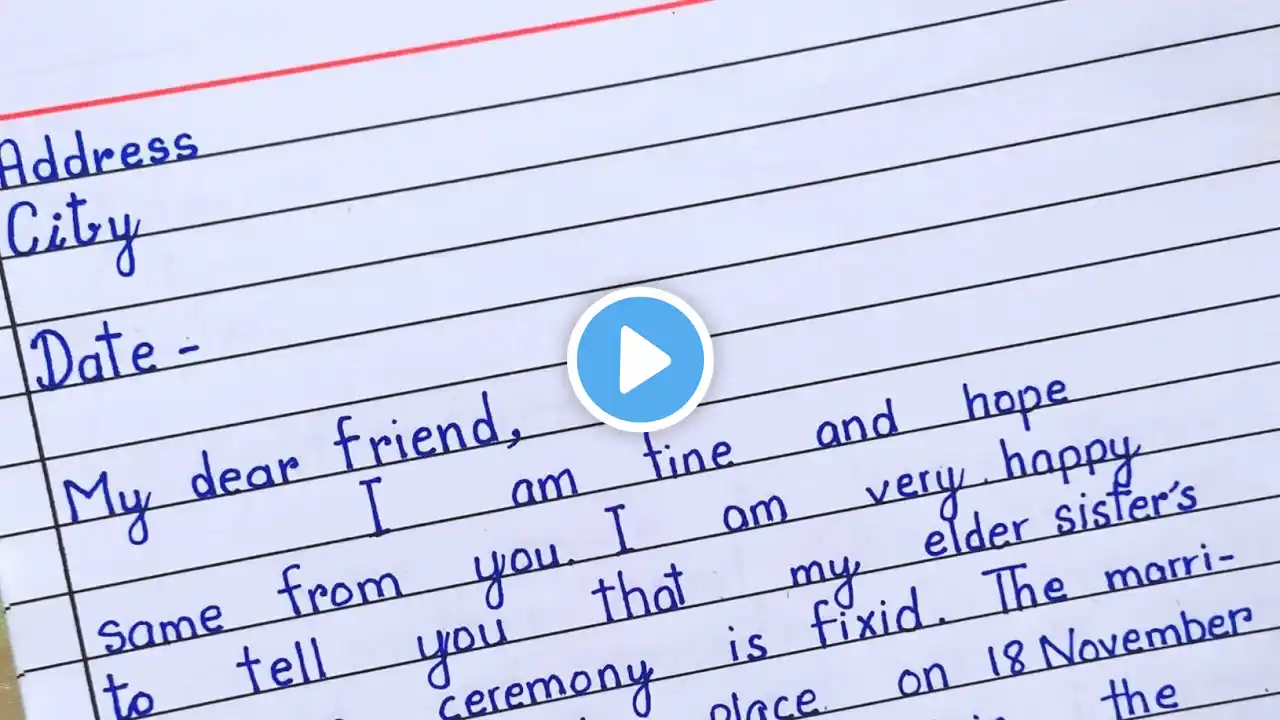 Address
City
Date -
My dear friend,
I am fine and hope
same from you. I am very happy
to tell you that my elder sister's
ceremony is fixid. The marri-
place on 18 November
the